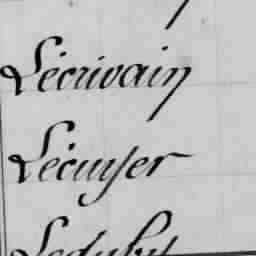 Lécrivain
Lécuyer